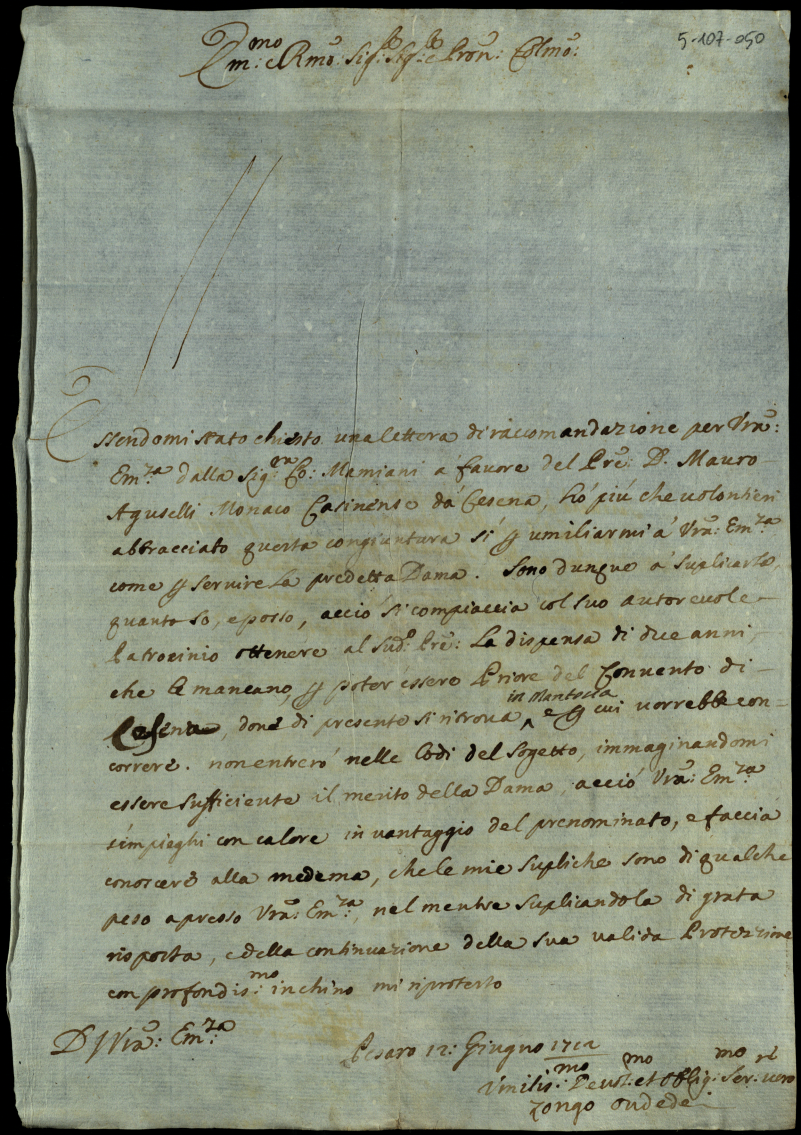 5-107-050
Em:mo e Rmo: Sig:re Sig:re e Pron: Colmo:
Essendomi stato chiesto una lettera di raccomandazione per Vra:
Em:za dalla Sig:ra Co: Mamiani a' favore del Pre: D. Mauro
Aguselli Monaco Casinense da' Cesena, hó piú che volontieri
abbracciato questa congiuntura sí p umiliarmi á Vra: Em:za
come p servire la predetta Dama. Sono dunque á suplicarla,
quanto so, e posso, acció si compiaccia col suo autorevole
Patrocinio ottenere al Sud:o Pre: la dispensa di due anni,
che le mancano, p poter essere Priore del Convento di
in Mantova
Cesena, dove di presente si ritrova ^ e p cui vorrebbe con-
correre. non entreró nelle lodi del sogetto, immaginandomi
essere sufficiente il merito della Dama, acció Vra: Em:za
s'impieghi con calore in vantaggio del prenominato, e faccia
conoscere alla medema, che le mie supliche sono di qualche
peso apresso Vra: Em:za, nel mentre suplicandola di grata
risposta, e della continuazione della sua valida Protezzione
con profondis:mo inchino mi riprotesto
D V Vra: Em:za
Pesaro 12: Giugno 1712
Umilis:mo Devot:mo et Oblig:mo Ser:re vero
Zongo Ondedei